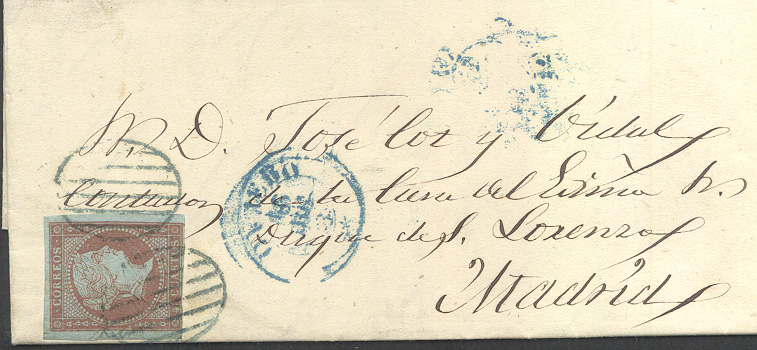 S. D. José Coz y Vidal
Contador de la Casa del Exmo Sr.
Duque de S. Lorenzo
Madrid
CORREOS